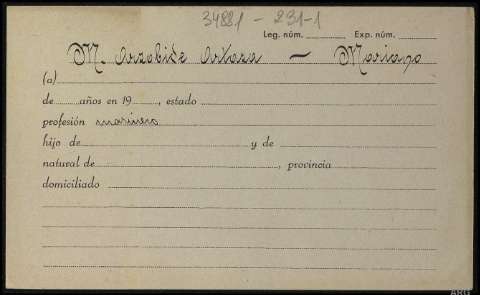 34881 - 231-1
Leg. núm. Exp. núm.
M. Arzabide Artaza — Mariano
(a)
de años en 19 , estado
profesión marinero
hijo de y de
natural de , provincia
domiciliado
ARG